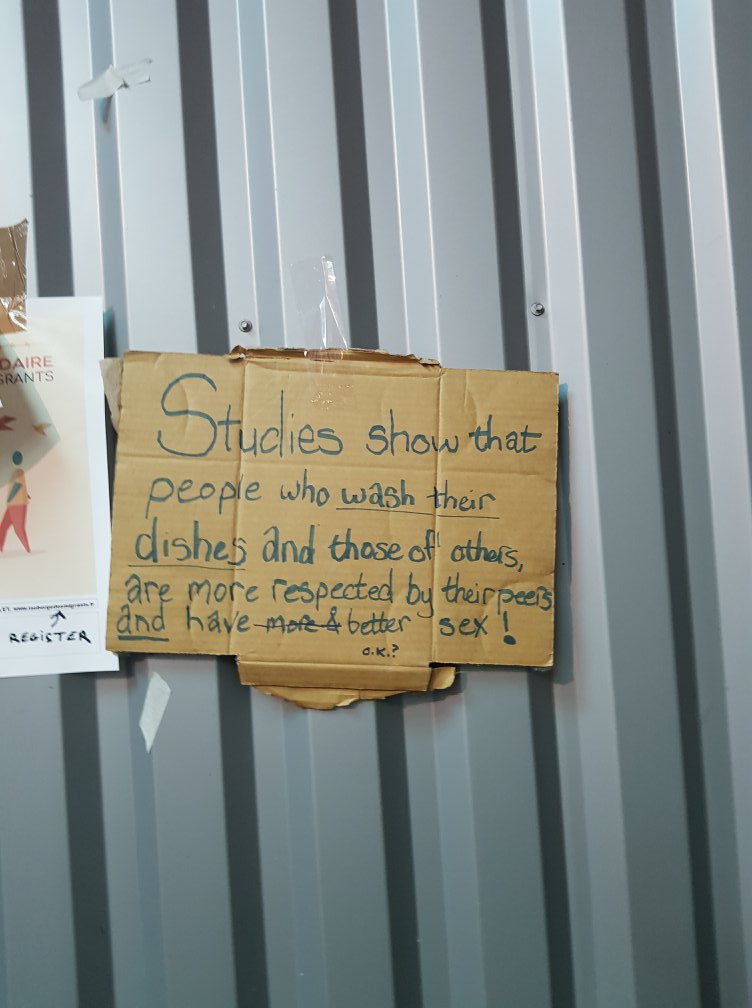 DAIRE
GRANTS
REGISTER
Studies show that
people who wash their
dishes and those of others,
are more respected by their peers
and have more & better sex!
O.K.?